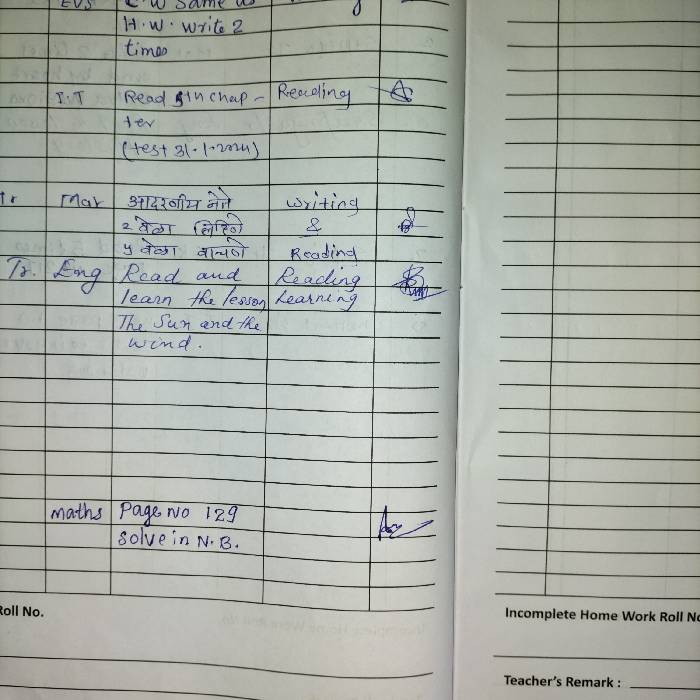 EVS C.W Same as
H.W. Write 2
times
I.T Read 5th chap- Reading
ter
(test 31.1.2024)
Mar आदरणीय नेते writing
२ वेळा लिहिणे &
५ वेळा वाचणे Reading
Eng Read and Reading
learn the lesson Learning
The Sun and the
wind.
Maths Page No 129
Solve in N.B.
Roll No.
Incomplete Home Work Roll No
Teacher's Remark :